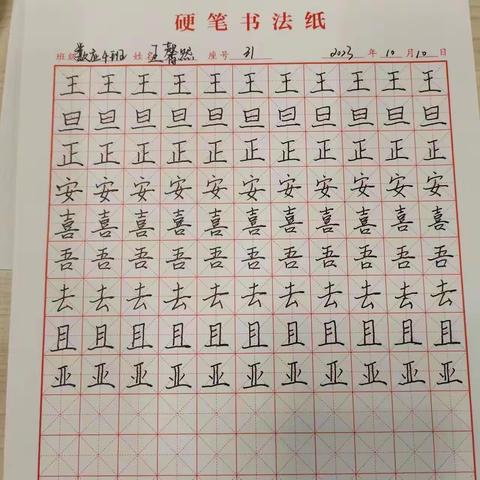 硬笔书法纸
班级 数应4班 姓名 王馨然 座号 31 2023 年 10 月 10 日
王 王 王 王 王 王 王 王 王 王 王
旦 旦 旦 旦 旦 旦 旦 旦 旦 旦 旦
正 正 正 正 正 正 正 正 正 正 正
安 安 安 安 安 安 安 安 安 安 安
喜 喜 喜 喜 喜 喜 喜 喜 喜 喜 喜
吾 吾 吾 吾 吾 吾 吾 吾 吾 吾 吾
去 去 去 去 去 去 去 去 去 去 去
且 且 且 且 且 且 且 且 且 且 且
亚 亚 亚 亚 亚 亚 亚 亚 亚 亚 亚